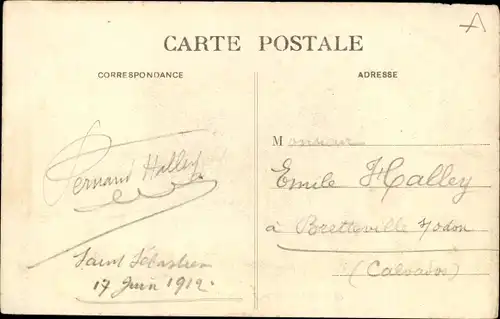 CARTE POSTALE
CORRESPONDANCE
ADRESSE
Fernand Halley
Saint Sébastien
17 Juin 1912.
Monsieur
Emile Halley
à Bretteville s/odon
(Calvados)